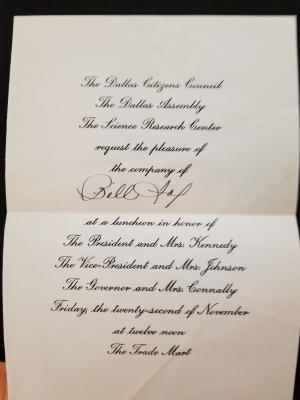 The Dallas Citizens Council
The Dallas Assembly
The Science Research Center
request the pleasure of
the company of
Bill
at a luncheon in honor of
The President and Mrs. Kennedy
The Vice-President and Mrs. Johnson
The Governor and Mrs. Connally
Friday, the twenty-second of November
at twelve noon
The Trade Mart